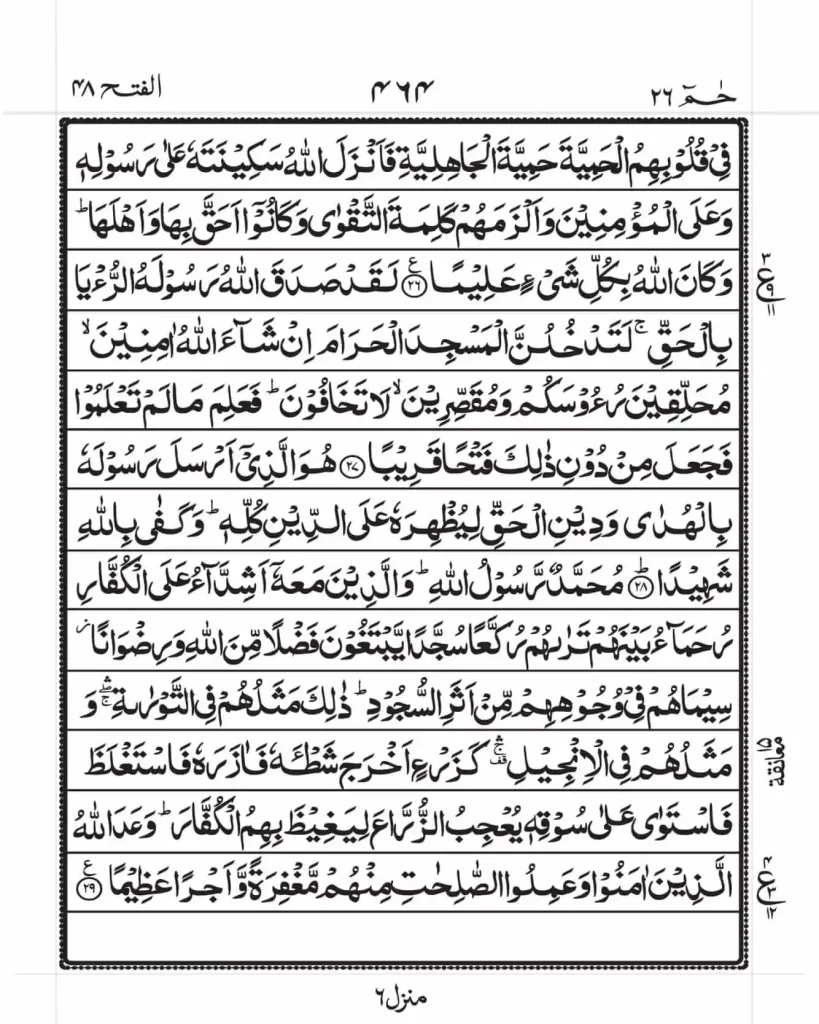 حٰمٓ ٢٦
٤٦٤
الفتح ٤٨
فِیْ قُلُوْبِهِمُ الْحَمِیَّةَ حَمِیَّةَ الْجَاهِلِیَّةِ فَاَنْزَلَ اللّٰهُ سَكِیْنَتَهٗ عَلٰی رَسُوْلِهٖ
وَعَلَی الْمُؤْمِنِیْنَ وَاَلْزَمَهُمْ كَلِمَةَ التَّقْوٰی وَكَانُوْۤا اَحَقَّ بِهَا وَاَهْلَهَا ؕ
وَكَانَ اللّٰهُ بِكُلِّ شَیْءٍ عَلِیْمًا ﴿٢٦﴾ ع لَقَدْ صَدَقَ اللّٰهُ رَسُوْلَهُ الرُّءْیَا
بِالْحَقِّ ۚ لَتَدْخُلُنَّ الْمَسْجِدَ الْحَرَامَ اِنْ شَآءَ اللّٰهُ اٰمِنِیْنَ ۙ
مُحَلِّقِیْنَ رُءُوْسَكُمْ وَمُقَصِّرِیْنَ ۙ لَا تَخَافُوْنَ ؕ فَعَلِمَ مَا لَمْ تَعْلَمُوْا
فَجَعَلَ مِنْ دُوْنِ ذٰلِكَ فَتْحًا قَرِیْبًا ﴿٢٧﴾ هُوَ الَّذِیْۤ اَرْسَلَ رَسُوْلَهٗ
بِالْهُدٰی وَدِیْنِ الْحَقِّ لِیُظْهِرَهٗ عَلَی الدِّیْنِ كُلِّهٖ ؕ وَكَفٰی بِاللّٰهِ
شَهِیْدًا ﴿٢٨﴾ ؕ مُحَمَّدٌ رَّسُوْلُ اللّٰهِ ؕ وَالَّذِیْنَ مَعَهٗۤ اَشِدَّآءُ عَلَی الْكُفَّارِ
رُحَمَآءُ بَیْنَهُمْ تَرٰىهُمْ رُكَّعًا سُجَّدًا یَّبْتَغُوْنَ فَضْلًا مِّنَ اللّٰهِ وَرِضْوَانًا ز
سِیْمَاهُمْ فِیْ وُجُوْهِهِمْ مِّنْ اَثَرِ السُّجُوْدِ ؕ ذٰلِكَ مَثَلُهُمْ فِی التَّوْرٰىةِ ۛۖۚ وَ
مَثَلُهُمْ فِی الْاِنْجِیْلِ ۛ قف كَزَرْعٍ اَخْرَجَ شَطْـَٔهٗ فَاٰزَرَهٗ فَاسْتَغْلَظَ
فَاسْتَوٰی عَلٰی سُوْقِهٖ یُعْجِبُ الزُّرَّاعَ لِیَغِیْظَ بِهِمُ الْكُفَّارَ ؕ وَعَدَ اللّٰهُ
الَّذِیْنَ اٰمَنُوْا وَعَمِلُوا الصّٰلِحٰتِ مِنْهُمْ مَّغْفِرَةً وَّاَجْرًا عَظِیْمًا ﴿٢٩﴾ ع
٣ ع ٩ ١١
معانقة ١٥
٤ ع ٣ ١٢
منزل ٦